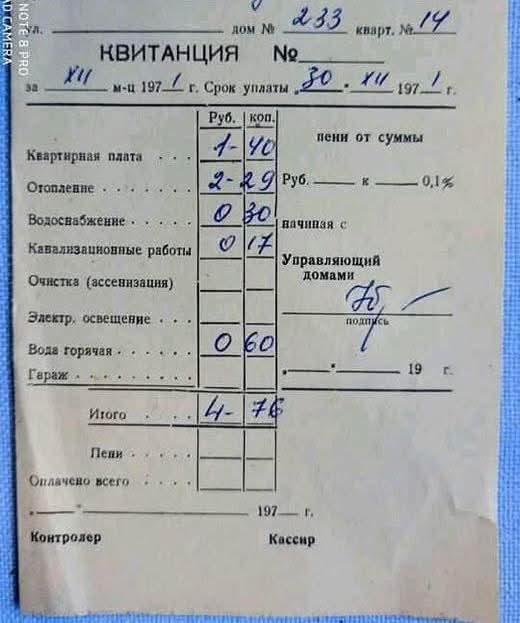 NOTE 8 PRO
AD CAMERA
ул. дом № 233 кварт. № 14
КВИТАНЦИЯ №
за XII м-ц 1971 г. Срок уплаты „30" XII 1971 г.
Руб. коп. пени от суммы
Квартирная плата . . . 1- 40
Отопление . . . . . . . 2- 29 Руб. к 0,1%
Водоснабжение . . . . 0 30 начиная с
Канализационные работы 0 17
Управляющий
Очистка (ассенизация) домами
Электр. освещение . . . подпись
Вода горячая . . . . . . 0 60
Гараж . . . . . . . . . „ " 19 г.
Итого . . . . 4- 76
Пени . . . . .
Оплачено всего . . . .
„ " 197 г.
Контролер Кассир